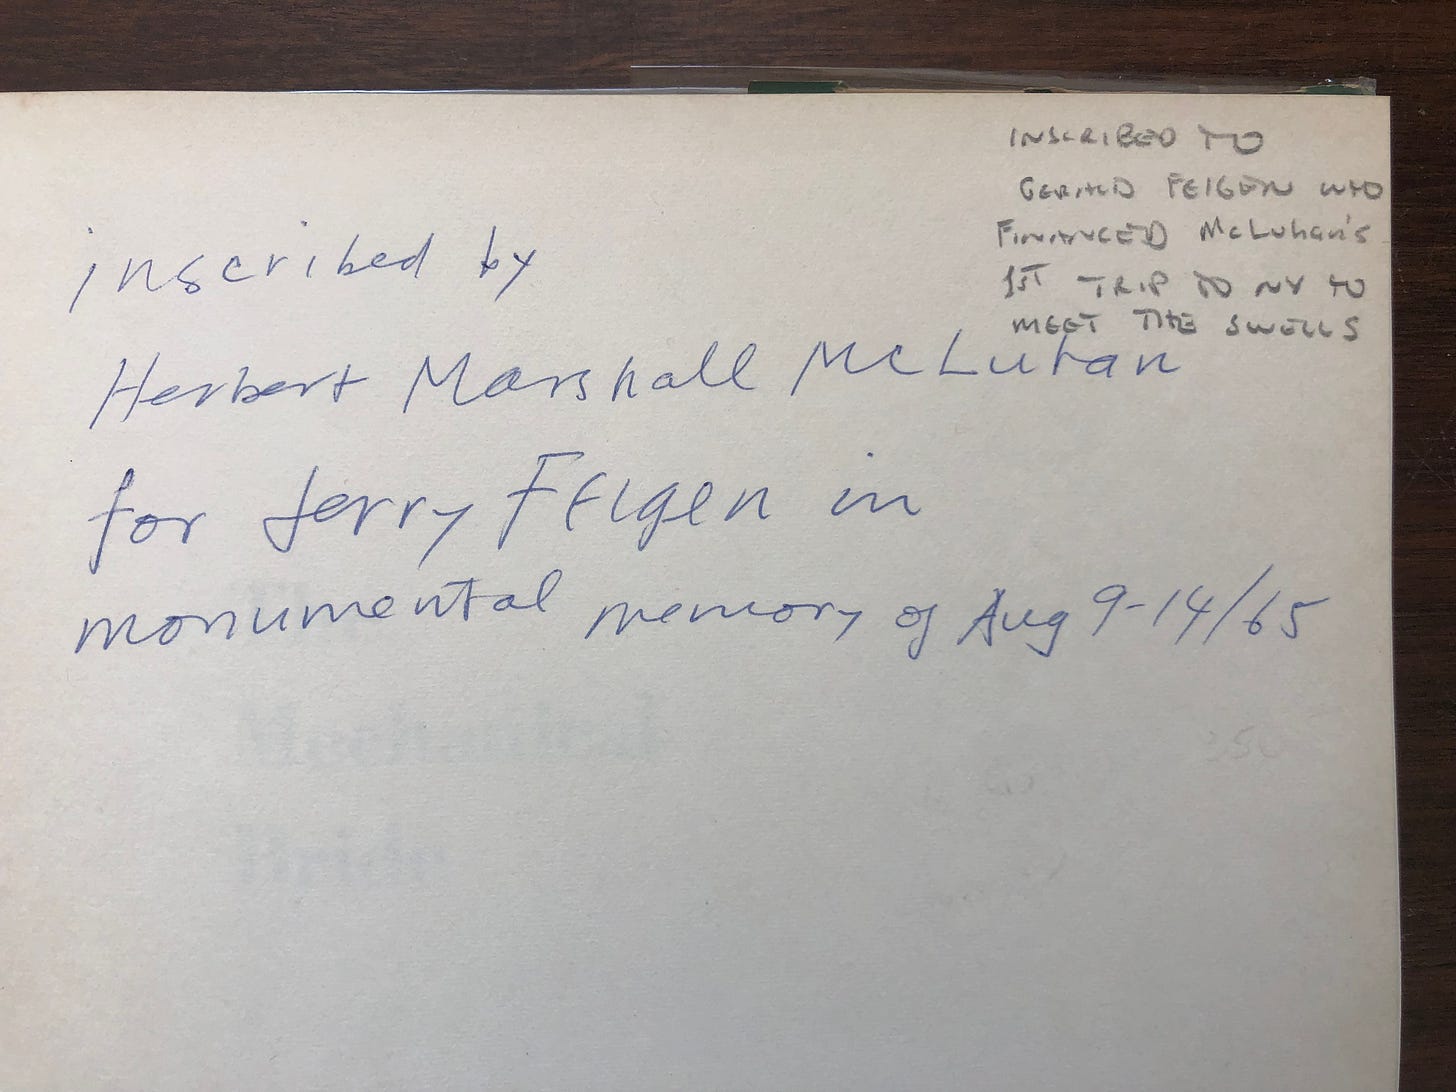 INSCRIBED TO
GERALD FEIGEN WHO
FINANCED McLuhan's
1ST TRIP TO NY TO
MEET THE SWELLS
inscribed by
Herbert Marshall McLuhan
for Jerry FEIgen in
monumental memory of Aug 9-14/65
Mechanical
Bride